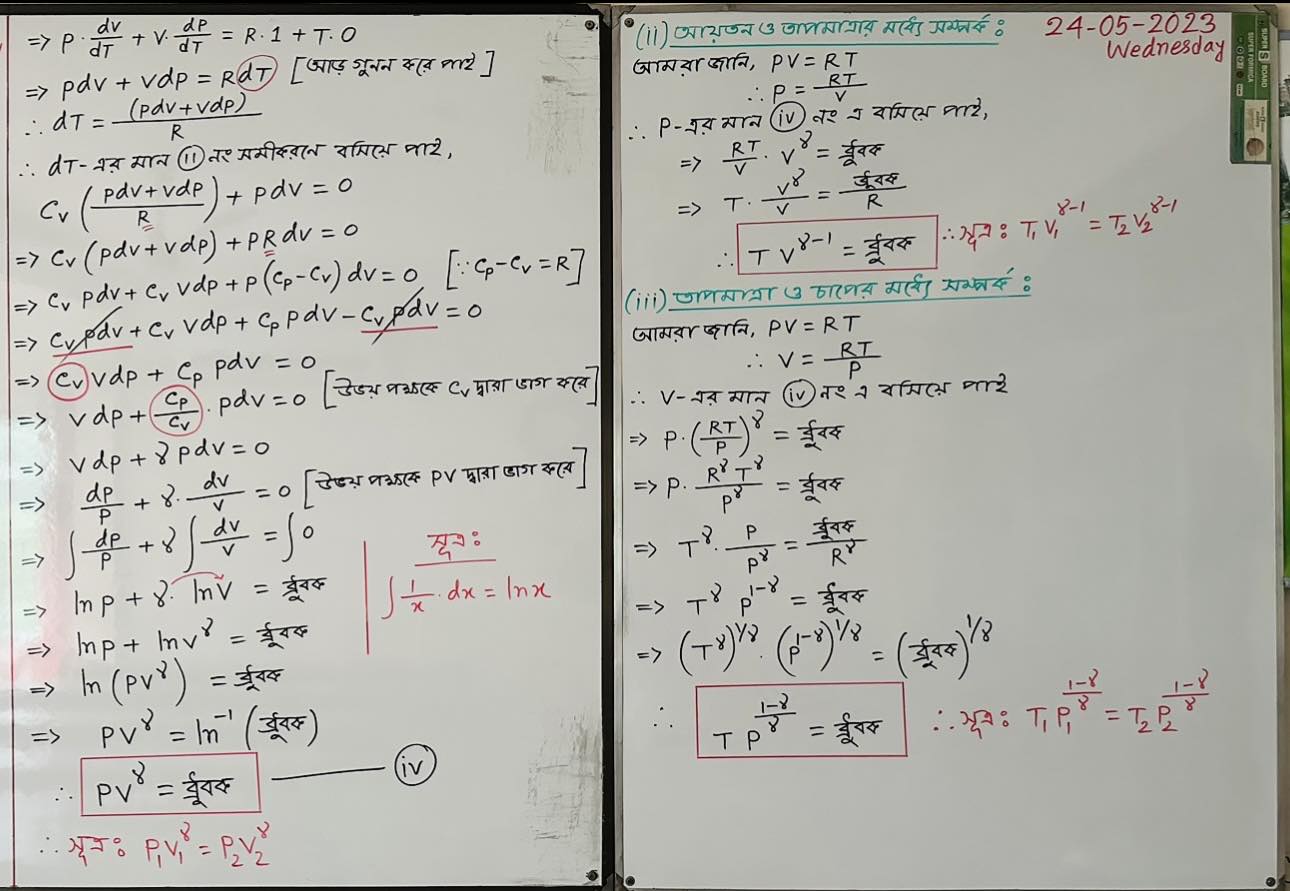 => P · dV/dT + V · dP/dT = R · 1 + T · 0
=> PdV + VdP = RdT [আড় গুনন করে পাই]
∴ dT = (PdV + VdP)/R
∴ dT-এর মান (ii) নং সমীকরনে বসিয়ে পাই,
Cv ((PdV + VdP)/R) + PdV = 0
=> Cv (PdV + VdP) + PRdV = 0
=> Cv PdV + Cv VdP + P(Cp - Cv) dV = 0 [∵ Cp - Cv = R]
=> Cv PdV + Cv VdP + Cp PdV - Cv PdV = 0
=> Cv VdP + Cp PdV = 0
=> VdP + Cp/Cv · PdV = 0 [উভয় পক্ষকে Cv দ্বারা ভাগ করে]
=> VdP + γPdV = 0
=> dP/P + γ · dV/V = 0 [উভয় পক্ষকে PV দ্বারা ভাগ করে]
=> ∫ dP/P + γ ∫ dV/V = ∫ 0
=> lnP + γ · lnV = ধ্রুবক
=> lnP + lnV^γ = ধ্রুবক
=> ln (PV^γ) = ধ্রুবক
=> PV^γ = ln⁻¹ (ধ্রুবক)
∴ PV^γ = ধ্রুবক —— (iv)
∴ সূত্রঃ P₁V₁^γ = P₂V₂^γ
সূত্রঃ
∫ 1/x · dx = lnx
(ii) আয়তন ও তাপমাত্রার মধ্যে সম্পর্ক :
24-05-2023
Wednesday
SUPER BOARD
SUPER FORMICA
আমরা জানি, PV = RT
∴ P = RT/V
∴ P-এর মান (iv) নং এ বসিয়ে পাই,
=> RT/V · V^γ = ধ্রুবক
=> T · V^γ/V = ধ্রুবক/R
∴ TV^(γ-1) = ধ্রুবক ∴ সূত্রঃ T₁V₁^(γ-1) = T₂V₂^(γ-1)
(iii) তাপমাত্রা ও চাপের মধ্যে সম্পর্ক :
আমরা জানি, PV = RT
∴ V = RT/P
∴ V-এর মান (iv) নং এ বসিয়ে পাই
=> P · (RT/P)^γ = ধ্রুবক
=> P · R^γ T^γ/P^γ = ধ্রুবক
=> T^γ · P/P^γ = ধ্রুবক/R^γ
=> T^γ P^(1-γ) = ধ্রুবক
=> (T^γ)^(1/γ) · (P^(1-γ))^(1/γ) = (ধ্রুবক)^(1/γ)
∴ TP^((1-γ)/γ) = ধ্রুবক ∴ সূত্রঃ T₁P₁^((1-γ)/γ) = T₂P₂^((1-γ)/γ)